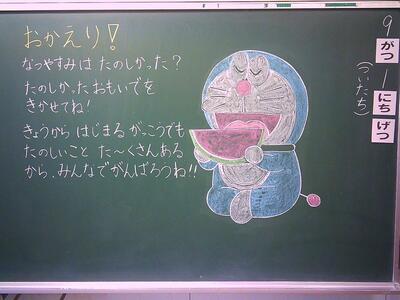 おかえり!
なつやすみは たのしかった?
たのしかった おもいでを
きかせてね!
きょうから はじまる がっこうでも
たのしいこと た〜くさんある
から、みんなでがんばろうね!!
9がつ1にち げつ
(ついたち)